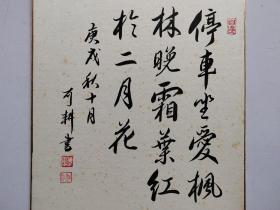 停車坐愛楓
林晚霜葉紅
於二月花
庚戌秋十月
可耕書